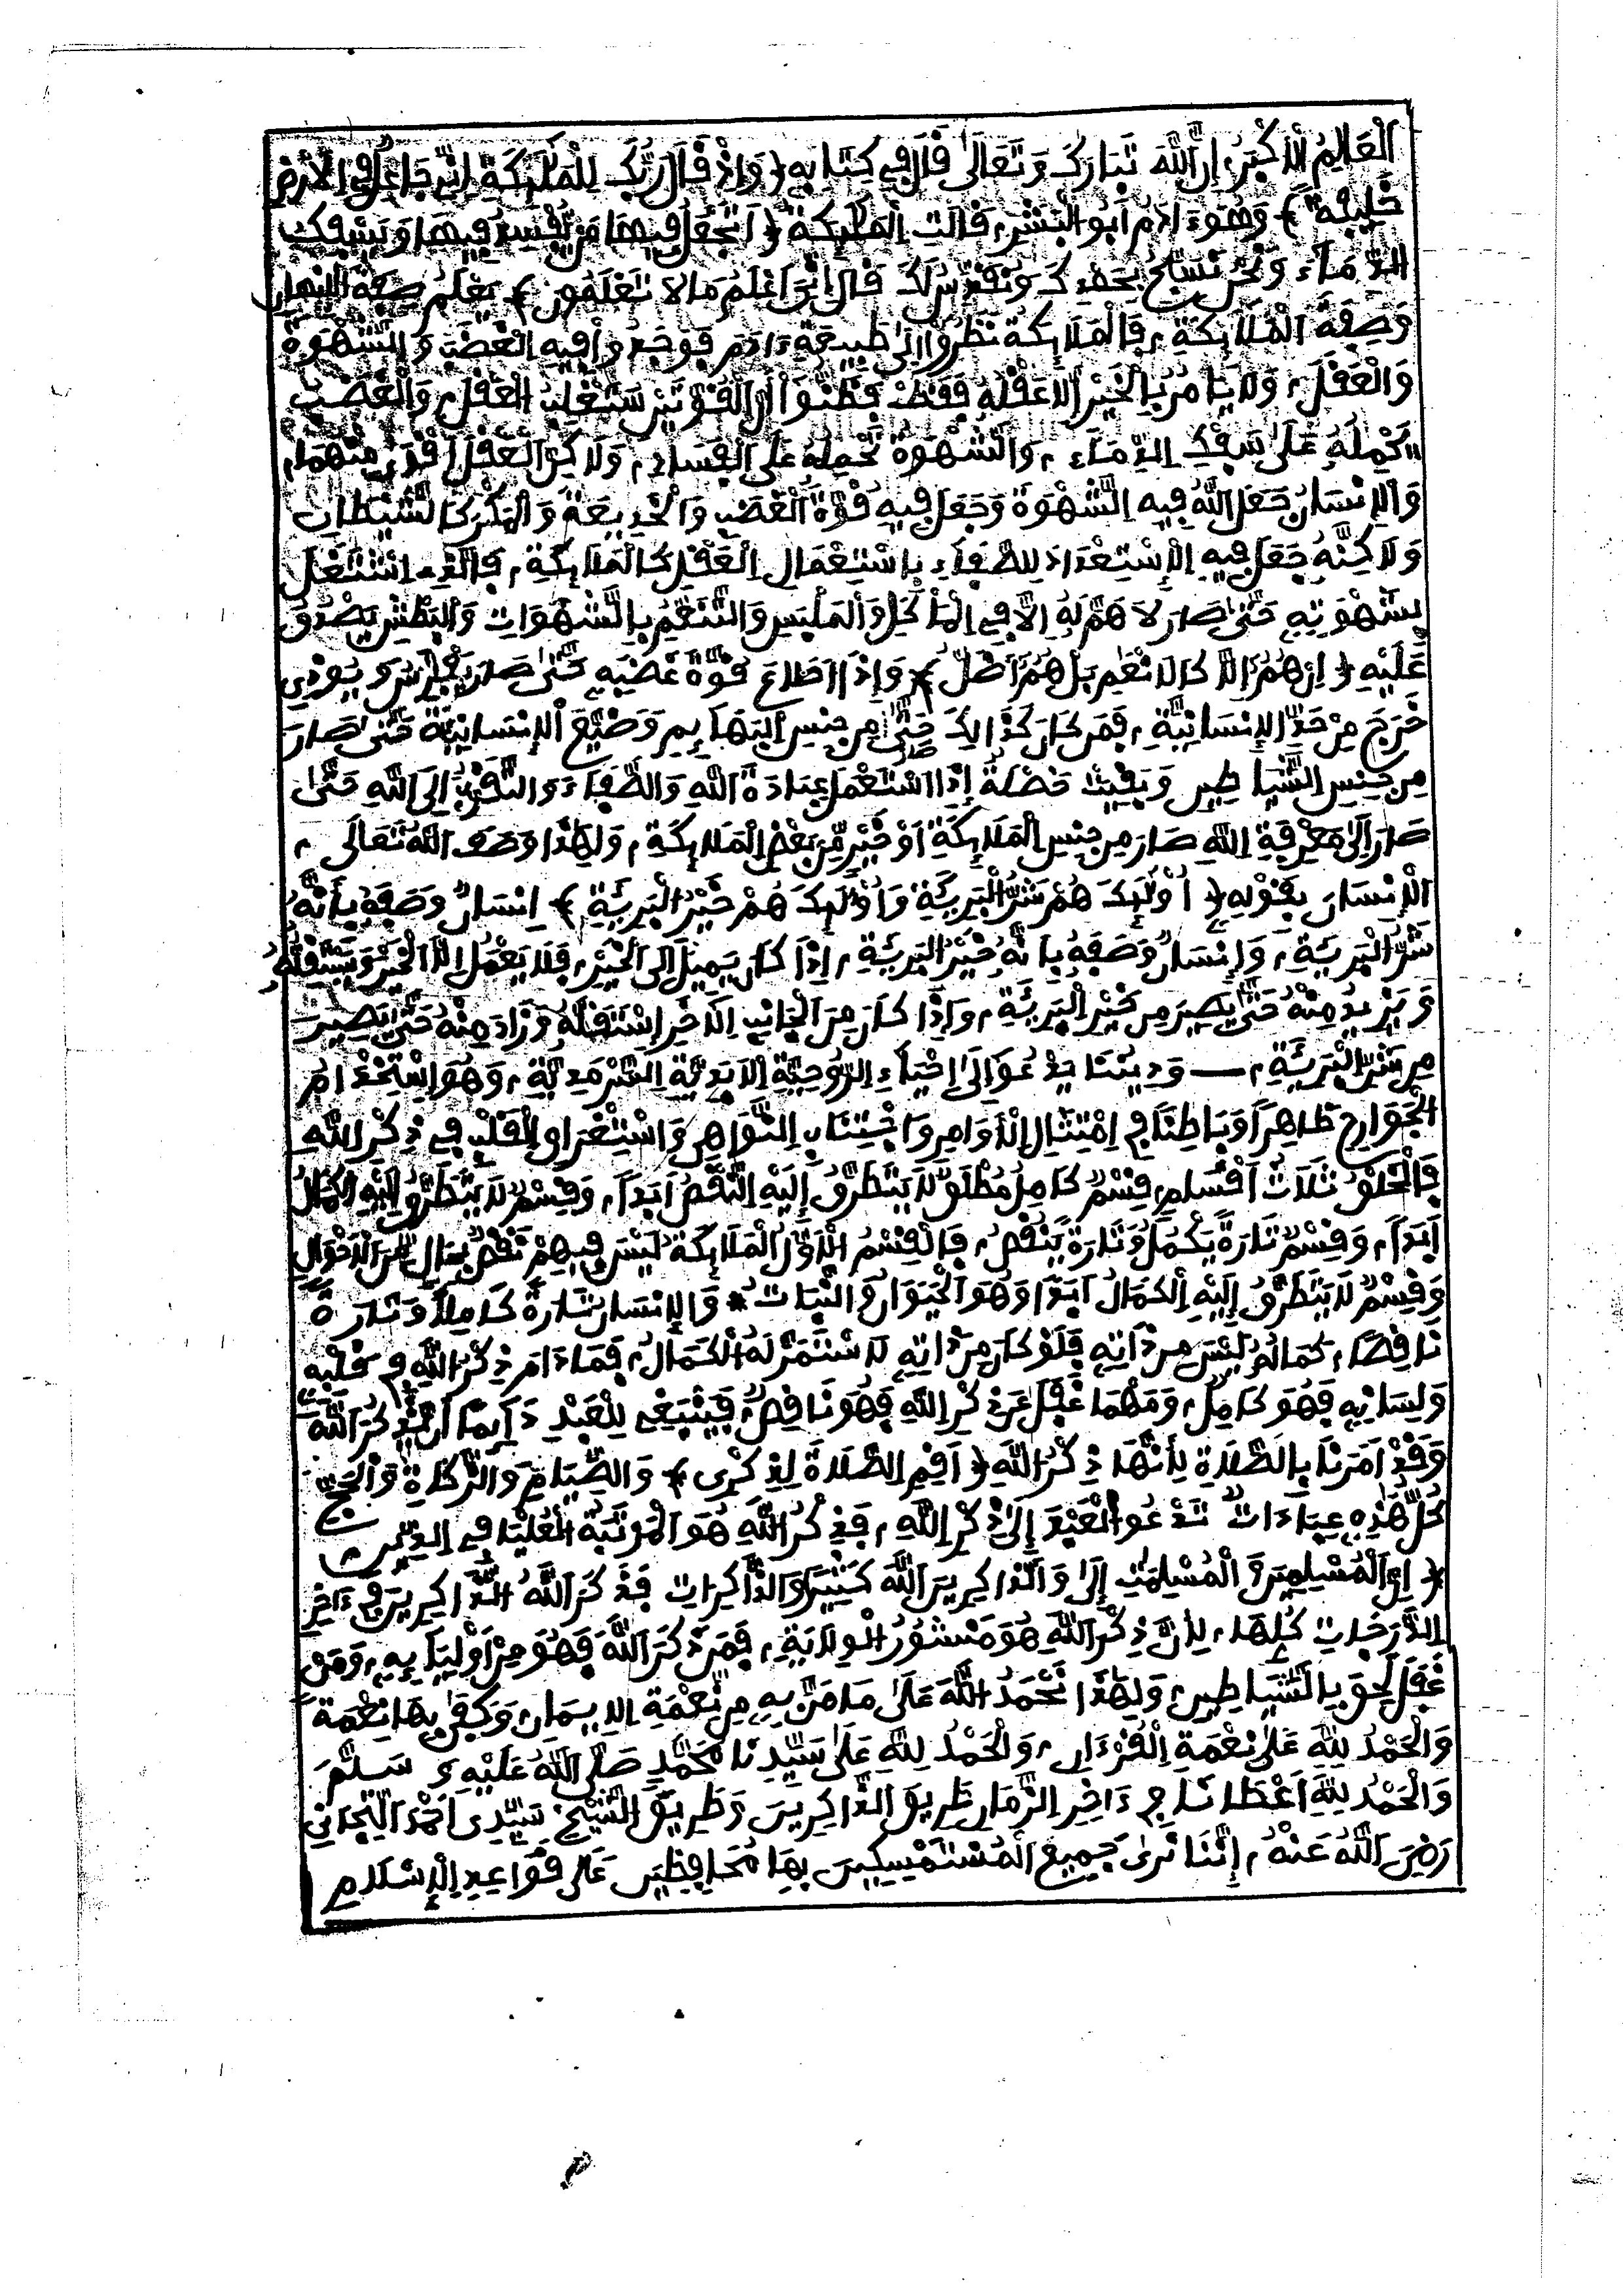 اَلْعَالِمُ الْأَكْبَرُ، إِنَّ اللَّهَ تَبَارَكَ وَتَعَالَىٰ قَالَ فِي كِتَابِهِ ﴿ وَإِذْ قَالَ رَبُّكَ لِلْمَلَٰئِكَةِ إِنِّي جَاعِلٌ فِي الْأَرْضِ
خَلِيفَةً ﴾ وَهُوَ ءَادَمُ أَبُو الْبَشَرِ، قَالَتِ الْمَلَٰئِكَةُ ﴿ أَتَجْعَلُ فِيهَا مَنْ يُفْسِدُ فِيهَا وَيَسْفِكُ
الدِّمَاءَ وَنَحْنُ نُسَبِّحُ بِحَمْدِكَ وَنُقَدِّسُ لَكَ قَالَ إِنِّي أَعْلَمُ مَا لَا تَعْلَمُونَ ﴾ يَعْلَمُ صِفَةَ الْإِنْسَانِ
وَصِفَةَ الْمَلَائِكَةِ، فَالْمَلَائِكَةُ نَظَرُوا إِلَىٰ طَبِيعَةِ ءَادَمَ فَوَجَدُوا فِيهِ الْغَضَبَ وَالشَّهْوَةَ
وَالْعَقْلَ، وَلَا يَأْمُرُ بِالْخَيْرِ إِلَّا عَقْلُهُ فَقَطْ فَظَنُّوا أَنَّ الْقُوَّتَيْنِ سَتَغْلِبُ الْعَقْلَ، وَالْغَضَبُ
يَحْمِلُهُ عَلَىٰ سَفْكِ الدِّمَاءِ، وَالشَّهْوَةُ تَحْمِلُهُ عَلَى الْفَسَادِ، وَلَاكِنَّ الْعَقْلَ أَقْوَىٰ مِنْهُمَا،
وَالْإِنْسَانُ جَعَلَ اللَّهُ فِيهِ الشَّهْوَةَ وَجَعَلَ فِيهِ قُوَّةَ الْغَضَبِ وَالْخَدِيعَةَ وَالْمَكْرَ كَالشَّيْطَانِ
وَلَاكِنَّهُ جَعَلَ فِيهِ الْإِسْتِعْدَادَ لِلصَّفَاءِ بِاسْتِعْمَالِ الْعَقْلِ كَالْمَلَائِكَةِ، فَالَّذِي اشْتَغَلَ
بِشَهْوَتِهِ حَتَّىٰ صَارَ لَا هَمَّ لَهُ إِلَّا فِي الْمَأْكَلِ وَالْمَلْبَسِ وَالتَّنَعُّمِ بِالشَّهَوَاتِ وَالْبَطْشِ يَصْدُقُ
عَلَيْهِ ﴿ إِنْ هُمْ إِلَّا كَالْأَنْعَٰمِ بَلْ هُمْ أَضَلُّ ﴾ وَإِذَا أَطَاعَ قُوَّةَ غَضَبِهِ حَتَّىٰ صَارَ يَفْتَرِسُ وَيُوذِي
خَرَجَ مِنْ حَدِّ الْإِنْسَانِيَّةِ، فَمَنْ كَانَ كَذَالِكَ صَارَ مِنْ جِنْسِ الْبَهَائِمِ وَضَيَّعَ الْإِنْسَانِيَّةَ حَتَّىٰ صَارَ
مِنْ جِنْسِ الشَّيَاطِينِ وَبَقِيَتْ خَصْلَةٌ إِذَا اسْتَعْمَلَ عِبَادَةَ اللَّهِ وَالصَّفَاءَ وَالتَّقَرُّبَ إِلَى اللَّهِ حَتَّىٰ
صَارَ إِلَىٰ مَعْرِفَةِ اللَّهِ صَارَ مِنْ جِنْسِ الْمَلَائِكَةِ أَوْ خَيْرٍ مِّنْ بَعْضِ الْمَلَائِكَةِ، وَلِهَٰذَا وَصَفَ اللَّهُ تَعَالَى،
الْإِنْسَانَ بِقَوْلِهِ ﴿ أُوْلَٰئِكَ هُمْ شَرُّ الْبَرِيئَةِ وَأُوْلَٰئِكَ هُمْ خَيْرُ الْبَرِيئَةِ ﴾ إِنْسَانٌ وَصَفَهُ بِأَنَّهُ
شَرُّ الْبَرِيئَةِ، وَإِنْسَانٌ وَصَفَهُ بِأَنَّهُ خَيْرُ الْبَرِيئَةِ، إِذَا كَانَ يَمِيلُ إِلَى الْخَيْرِ، فَلَا يَعْمَلُ إِلَّا الْخَيْرَ وَيَسْتَقِلُّهُ
وَيَزِيدُ مِنْهُ حَتَّىٰ يَصِيرَ مِنْ خَيْرِ الْبَرِيئَةِ، وَإِذَا كَانَ مِنَ الْجَانِبِ الْآخَرِ اسْتَقَلَّهُ وَزَادَ مِنْهُ حَتَّىٰ يَصِيرَ
مِنْ شَرِّ الْبَرِيئَةِ، ــ وَدِينُنَا يَدْعُو إِلَىٰ إِحْيَاءِ الرُّوحِيَّةِ الْأَبَدِيَّةِ السَّرْمَدِيَّةِ، وَهُوَ اسْتِخْدَامُ
الْجَوَارِحِ ظَاهِرًا وَبَاطِنًا فِي امْتِثَالِ الْأَوَامِرِ وَاجْتِنَابِ النَّوَاهِي وَاسْتِغْرَاقِ الْقَلْبِ فِي ذِكْرِ اللَّهِ
فَالْخَلْقُ ثَلَاثُ أَقْسَامٍ، قِسْمٌ كَامِلٌ مُطْلَقٌ لَا يَتَطَرَّقُ إِلَيْهِ النَّقْصُ أَبَدًا، وَقِسْمٌ لَا يَتَطَرَّقُ إِلَيْهِ الْكَمَالُ
أَبَدًا، وَقِسْمٌ تَارَةً يَكْمُلُ وَتَارَةً يَنْقُصُ، فَالْقِسْمُ الْأَوَّلُ الْمَلَائِكَةُ لَيْسَ فِيهِمْ نَقْصٌ بِحَالٍ مِّنَ الْأَحْوَالِ
وَقِسْمٌ لَا يَتَطَرَّقُ إِلَيْهِ الْكَمَالُ أَبَدًا وَهُوَ الْحَيَوَانُ وَالنَّبَاتُ * وَالْإِنْسَانُ تَارَةً كَامِلًا وَتَارَةً
نَاقِصًا، كَمَالُهُ لَيْسَ مِنْ ذَاتِهِ فَلَوْ كَانَ مِنْ ذَاتِهِ لَاسْتَمَرَّ لَهُ الْكَمَالُ، فَمَا دَامَ ذِكْرُ اللَّهِ فِي قَلْبِهِ
وَلِسَانِهِ فَهُوَ كَامِلٌ، وَمَهْمَا غَفَلَ عَنْ ذِكْرِ اللَّهِ فَهُوَ نَاقِصٌ، فَيَنْبَغِي لِلْعَبْدِ دَائِمًا أَنْ يَذْكُرَ اللَّهَ
وَقَدْ أَمَرَنَا بِالصَّلَاةِ لِأَنَّهَا ذِكْرُ اللَّهِ ﴿ أَقِمِ الصَّلَاةَ لِذِكْرِي ﴾ وَالصِّيَامِ وَالزَّكَاةِ وَالْحَجِّ
كُلُّ هَٰذِهِ عِبَادَاتٌ تَدْعُو الْعَبْدَ إِلَىٰ ذِكْرِ اللَّهِ، فَذِكْرُ اللَّهِ هُوَ الْمَرْتَبَةُ الْعُلْيَا فِي الدِّينِ،
﴿ إِنَّ الْمُسْلِمِينَ وَالْمُسْلِمَٰتِ إِلَىٰ وَالذَّاكِرِينَ اللَّهَ كَثِيرًا وَالذَّاكِرَاتِ فَذَكَرَ اللَّهُ الذَّاكِرِينَ فِي ءَاخِرِ
الدَّرَجَاتِ كُلِّهَا، لِأَنَّ ذِكْرَ اللَّهِ هُوَ مَنْشُورُ الْوِلَايَةِ، فَمَنْ ذَكَرَ اللَّهَ فَهُوَ مِنْ أَوْلِيَائِهِ، وَمَنْ
غَفَلَ لَحِقَ بِالشَّيَاطِينِ، وَلِهَٰذَا نَحْمَدُ اللَّهَ عَلَىٰ مَا مَنَّ بِهِ مِنْ نِعْمَةِ الْإِيمَانِ، وَكَفَىٰ بِهَا نِعْمَةً
وَالْحَمْدُ لِلَّهِ عَلَىٰ نِعْمَةِ الْقُرْءَانِ، وَالْحَمْدُ لِلَّهِ عَلَىٰ سَيِّدِنَا مُحَمَّدٍ صَلَّى اللَّهُ عَلَيْهِ وَسَلَّمَ
وَالْحَمْدُ لِلَّهِ أَعْطَانَا فِي ءَاخِرِ الزَّمَانِ طَرِيقَ الذَّاكِرِينَ وَطَرِيقَ الشَّيْخِ سَيِّدِي أَحْمَدَ التِّجَانِي
رَضِيَ اللَّهُ عَنْهُ، إِنَّنَا نَرَىٰ جَمِيعَ الْمُسْتَمْسِكِينَ بِهَا مُحَافِظِينَ عَلَىٰ قَوَاعِدِ الْإِسْلَامِ